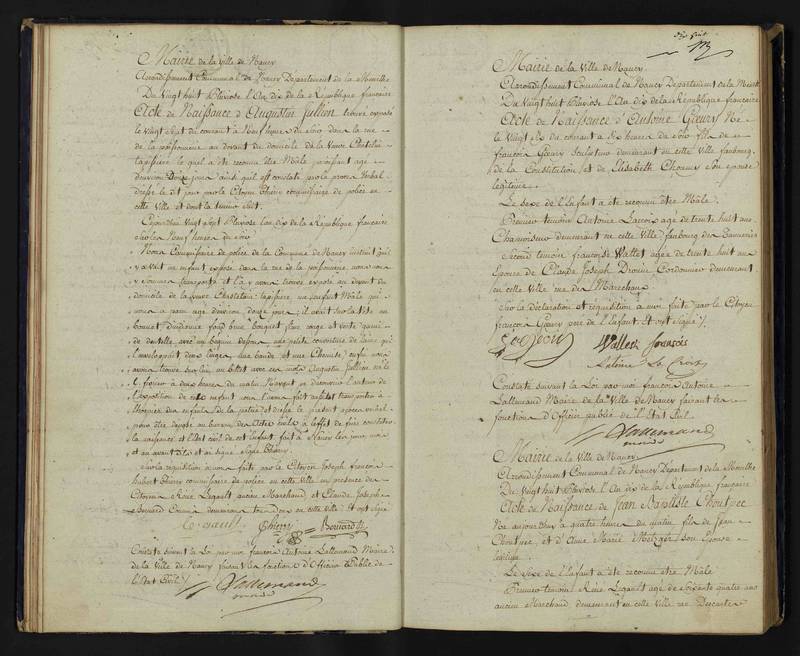 Mairie de la ville de Nancy
Arrondissement Communal de Nancy Departement de la Meurthe
Du Vingt huit Pluviose l'an dix de la République française
Acte de Naissance d'Augustin Jullien trouvé exposé
le vingt sept du courant à Neuf heures du soir dans la rue
de la poissonnerie au devant du domicile de la Veuve Chatelin
tapissiere lequel a été reconnu être Mâle paroissant agé
d'environ Douze jours ainsi qu'il est constaté par le procès Verbal
dressé le dit jour par le Citoyen Thiery commissaire de police en
cette Ville et dont la teneur suit.
Cejourd'hui vingt sept Pluviose l'an dix de la République française
Sur les Neuf heures du soir
Nous Commissaire de police de la Commune de Nancy instruit qu'il
y avait un enfant exposé dans la rue de la poissonnerie nous nous
y sommes transporté et là y avons trouvé exposé au devant du
domicile de la veuve Chatelin tapissiere, un enfant Mâle qui
nous a paru agé d'environ douze jours; il avait sur la tête un
bonnet d'indienne fond brun bouquet fleur rouge et verte garni
de dentelle, avec un beguin dessous une petite couverture de laine qui
l'enveloppait deux langes une bande et une Chemise; enfin nous
avons trouvé sur lui un billet avec ces mots Augustin Jullien né le
à deux heures du matin N'ayant pu decouvrir l'auteur de
l'exposition de cet enfant nous l'avons fait transporter à
l'hospice des enfants de la patrie et dressé le present procès verbal
pour être déposé au bureau des actes civils à l'effet de faire constater
la naissance et l'Etat civil de cet Enfant fait à Nancy les jour, mois
et an avant dits et ai signé Signé Thiery.
Sur la requisition à nous faite par le Citoyen Joseph françois
hubert Thiery commissaire de police en cette ville en presence des
Citoyens René Legault ancien Marchand et Claude Joseph
Bernard demeurant tous deux en cette Ville et ont signé
Legault Thiery Bernard
Constaté suivant la Loi par moi françois Antoine Lallemand Maire
de la Ville de Nancy faisant les fonctions d'Officier Public de
l'Etat Civil
Lallemand
maire
dix huit
Mairie de la Ville de Nancy.
Arrondissement Communal de Nancy Departement de la Meurthe
Du Vingt huit Pluviose l'An dix de la République française
Acte de Naissance d'Antoine Gœury Né
le vingt Six du courant à dix heures du soir fils de
françois Gœury Sculpteur demeurant en cette Ville faubourg
de la Constitution et de Elisabeth Choroux son épouse
légitime.
Le sexe de l'Enfant a été reconnu être Mâle.
Premier temoin Antoine Lacroix agé de trente huit ans
Chamoiseur demeurant en cette Ville, faubourg des Tanneries
Second temoin françoise Wallet agée de trente huit ans
Epouse de Claude Joseph Drouin Cordonnier demeurant
en cette Ville rue des Marechaux
Sur la déclaration et réquisition à moi faite par le Citoyen
françois Gœury pere de l'Enfant Et ont Signé
Wallett françois
Antoine La Croix
Constaté suivant la Loi par moi françois Antoine
Lallemand Maire de la Ville de Nancy faisant les
fonctions d'Officier public de l'Etat Civil.
Lallemand
maire
Mairie de la Ville de Nancy
Arrondissement Communal de Nancy Departement de la Meurthe
Du Vingt huit Pluviose l'An dix de la République française
Acte de Naissance de Jean Baptiste Choutpee
Né aujourd'hui à quatre heures du matin fils de Jean
Choutpee, et d'Anne Marie Metzger son Epouse
légitime
Le Sexe de l'Enfant a été reconnu être Mâle
Premier temoin René Legault agé de Soixante quatre ans
ancien Marchand demeurant en cette ville rue Descartes